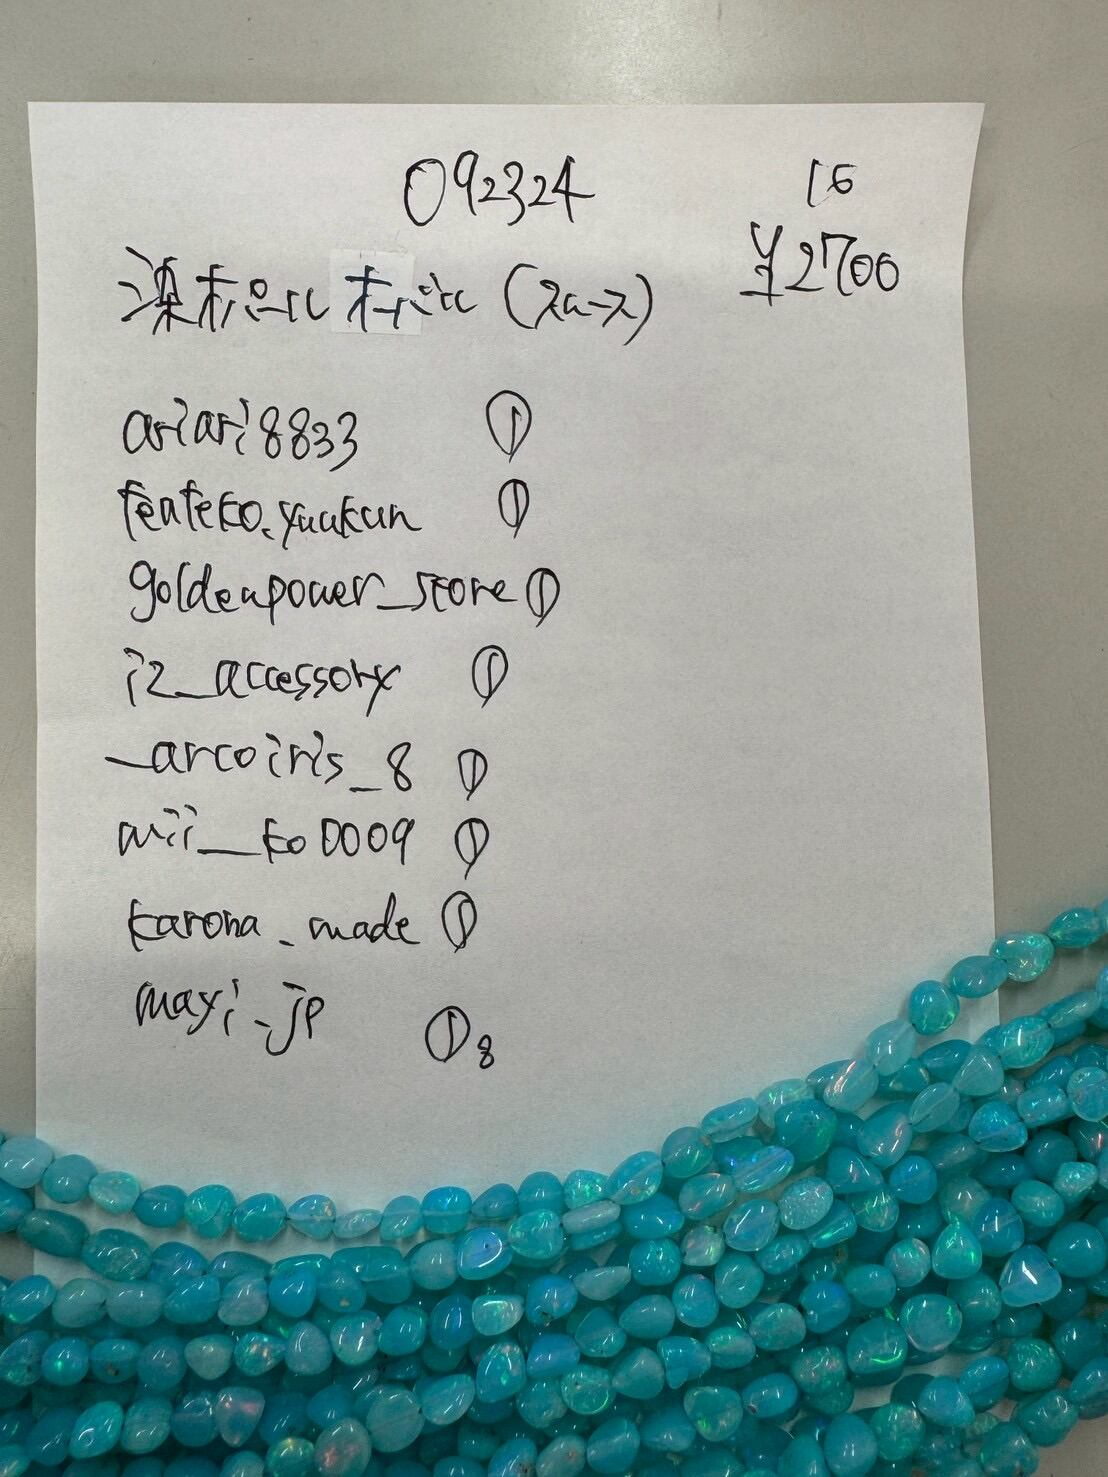 092324
16
¥2700
染オパール オパール (スムース)
ariari8833 ①
teateko.yuukun ①
goldenpower_store ①
iz_accessory ①
_arcoiris_8 ①
mii__ko0009 ①
karona_made ①
mayi_jp ① 8